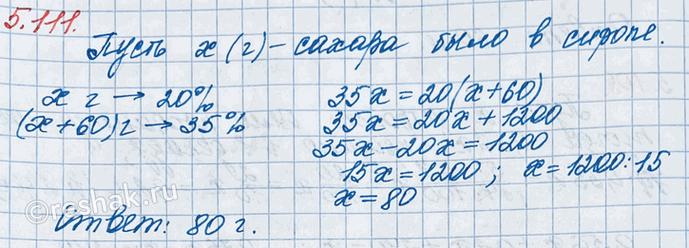 5.111.
Пусть x (г) - сахара было в сиропе.
x г → 20%
(x+60) г → 35%
35x = 20(x+60)
35x = 20x + 1200
35x - 20x = 1200
15x = 1200 ; x = 1200:15
x = 80
Ответ: 80 г.
reshak.ru